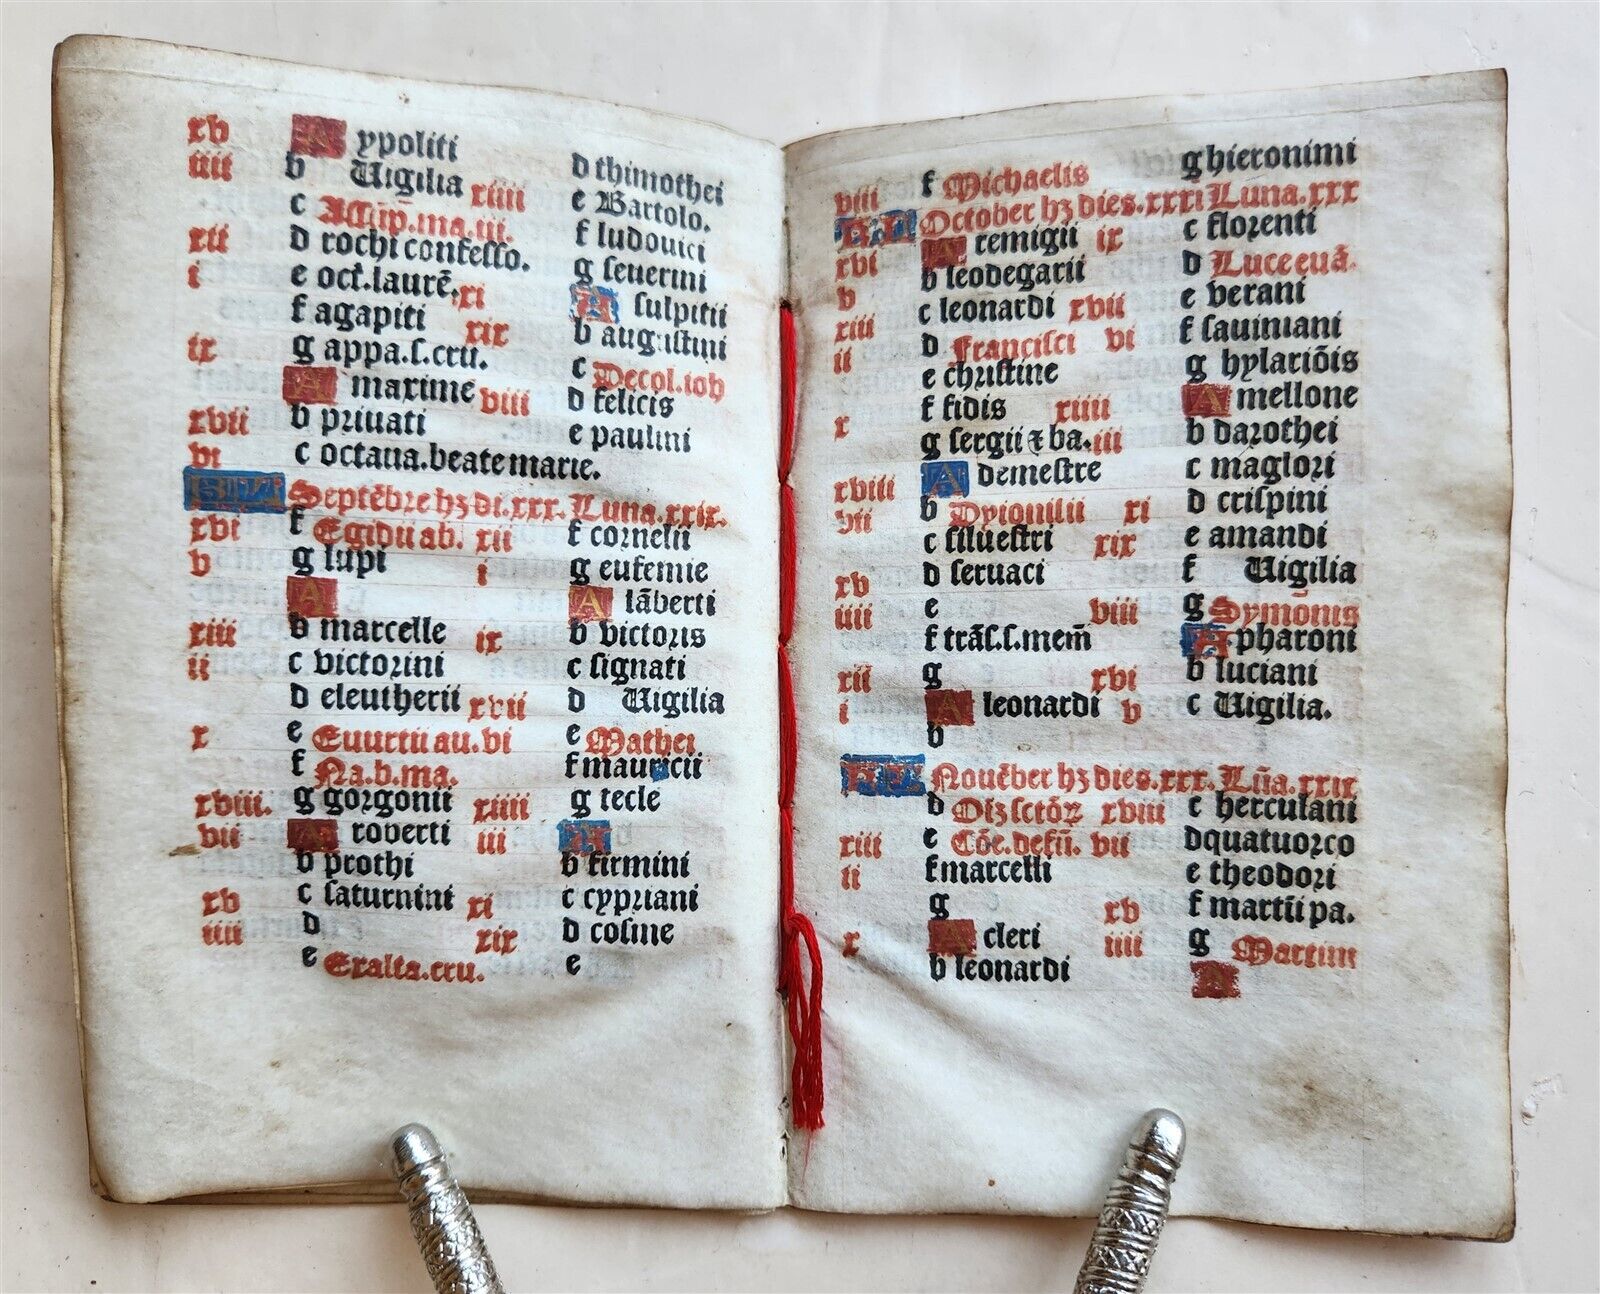 xv A ypoliti
iiii b Uigilia
c Assūp.ma.iii.
xii d rochi confesso.
i e oct.laurē.
f agapiti
ix g appa.s.cru.
A maxime
xvii b priuati
vi c octaua.beate marie.
d thimothei
xiiii e Bartolo.
f ludouici
g seuerini
xi A sulpitii
xix b augustini
c Decol.ioh
viii d felicis
e paulini
KL Septēbre hȝ di.xxx. Luna.xxix.
xvi f Egidii ab.
v g lupi
A
xiii b marcelle
ii c victorini
d eleutherii
x e Euurtii au.vi
f Na.b.ma.
xviii. g gorgonii
vii A roberti
b prothi
xv c saturnini
iiii d
e Exalta.cru.
xii f cornelii
i g eufemie
A lāberti
ix b victoris
c signati
xvii d Uigilia
e Mathei
f mauricii
xiiii g tecle
iii A
b firmini
xi c cypriani
xix d cosme
e
viii f Michaelis
g hieronimi
KL October hȝ dies.xxxi Luna.xxx
xvi A remigii
v b leodegarii
c leonardi
xiii d Francisci
ii e christine
f fidis
x g sergii ⁊ ba.
A demestre
xviii b Dyionisii
vii c siluestri
d seruaci
xv e
iiii f trās.s.mem̄
g
xii A leonardi
i b
ix c florenti
d Luce euā.
xvii e verani
vi f sauiniani
g hylariōis
xiiii A mellone
iii b darothei
c maglori
xi d crispini
xix e amandi
f Uigilia
viii g Symonis
A pharoni
xvi b luciani
v c Uigilia.
KL Nouēber hȝ dies.xxx. Lūa.xxix
d Oīȝ sctōꝝ
xiii e Cōe.defū.
ii f marcelli
g
x A cleri
b leonardi
xviii c herculani
vii d quatuor co
e theodori
xv f martii pa.
iiii g Martini
A